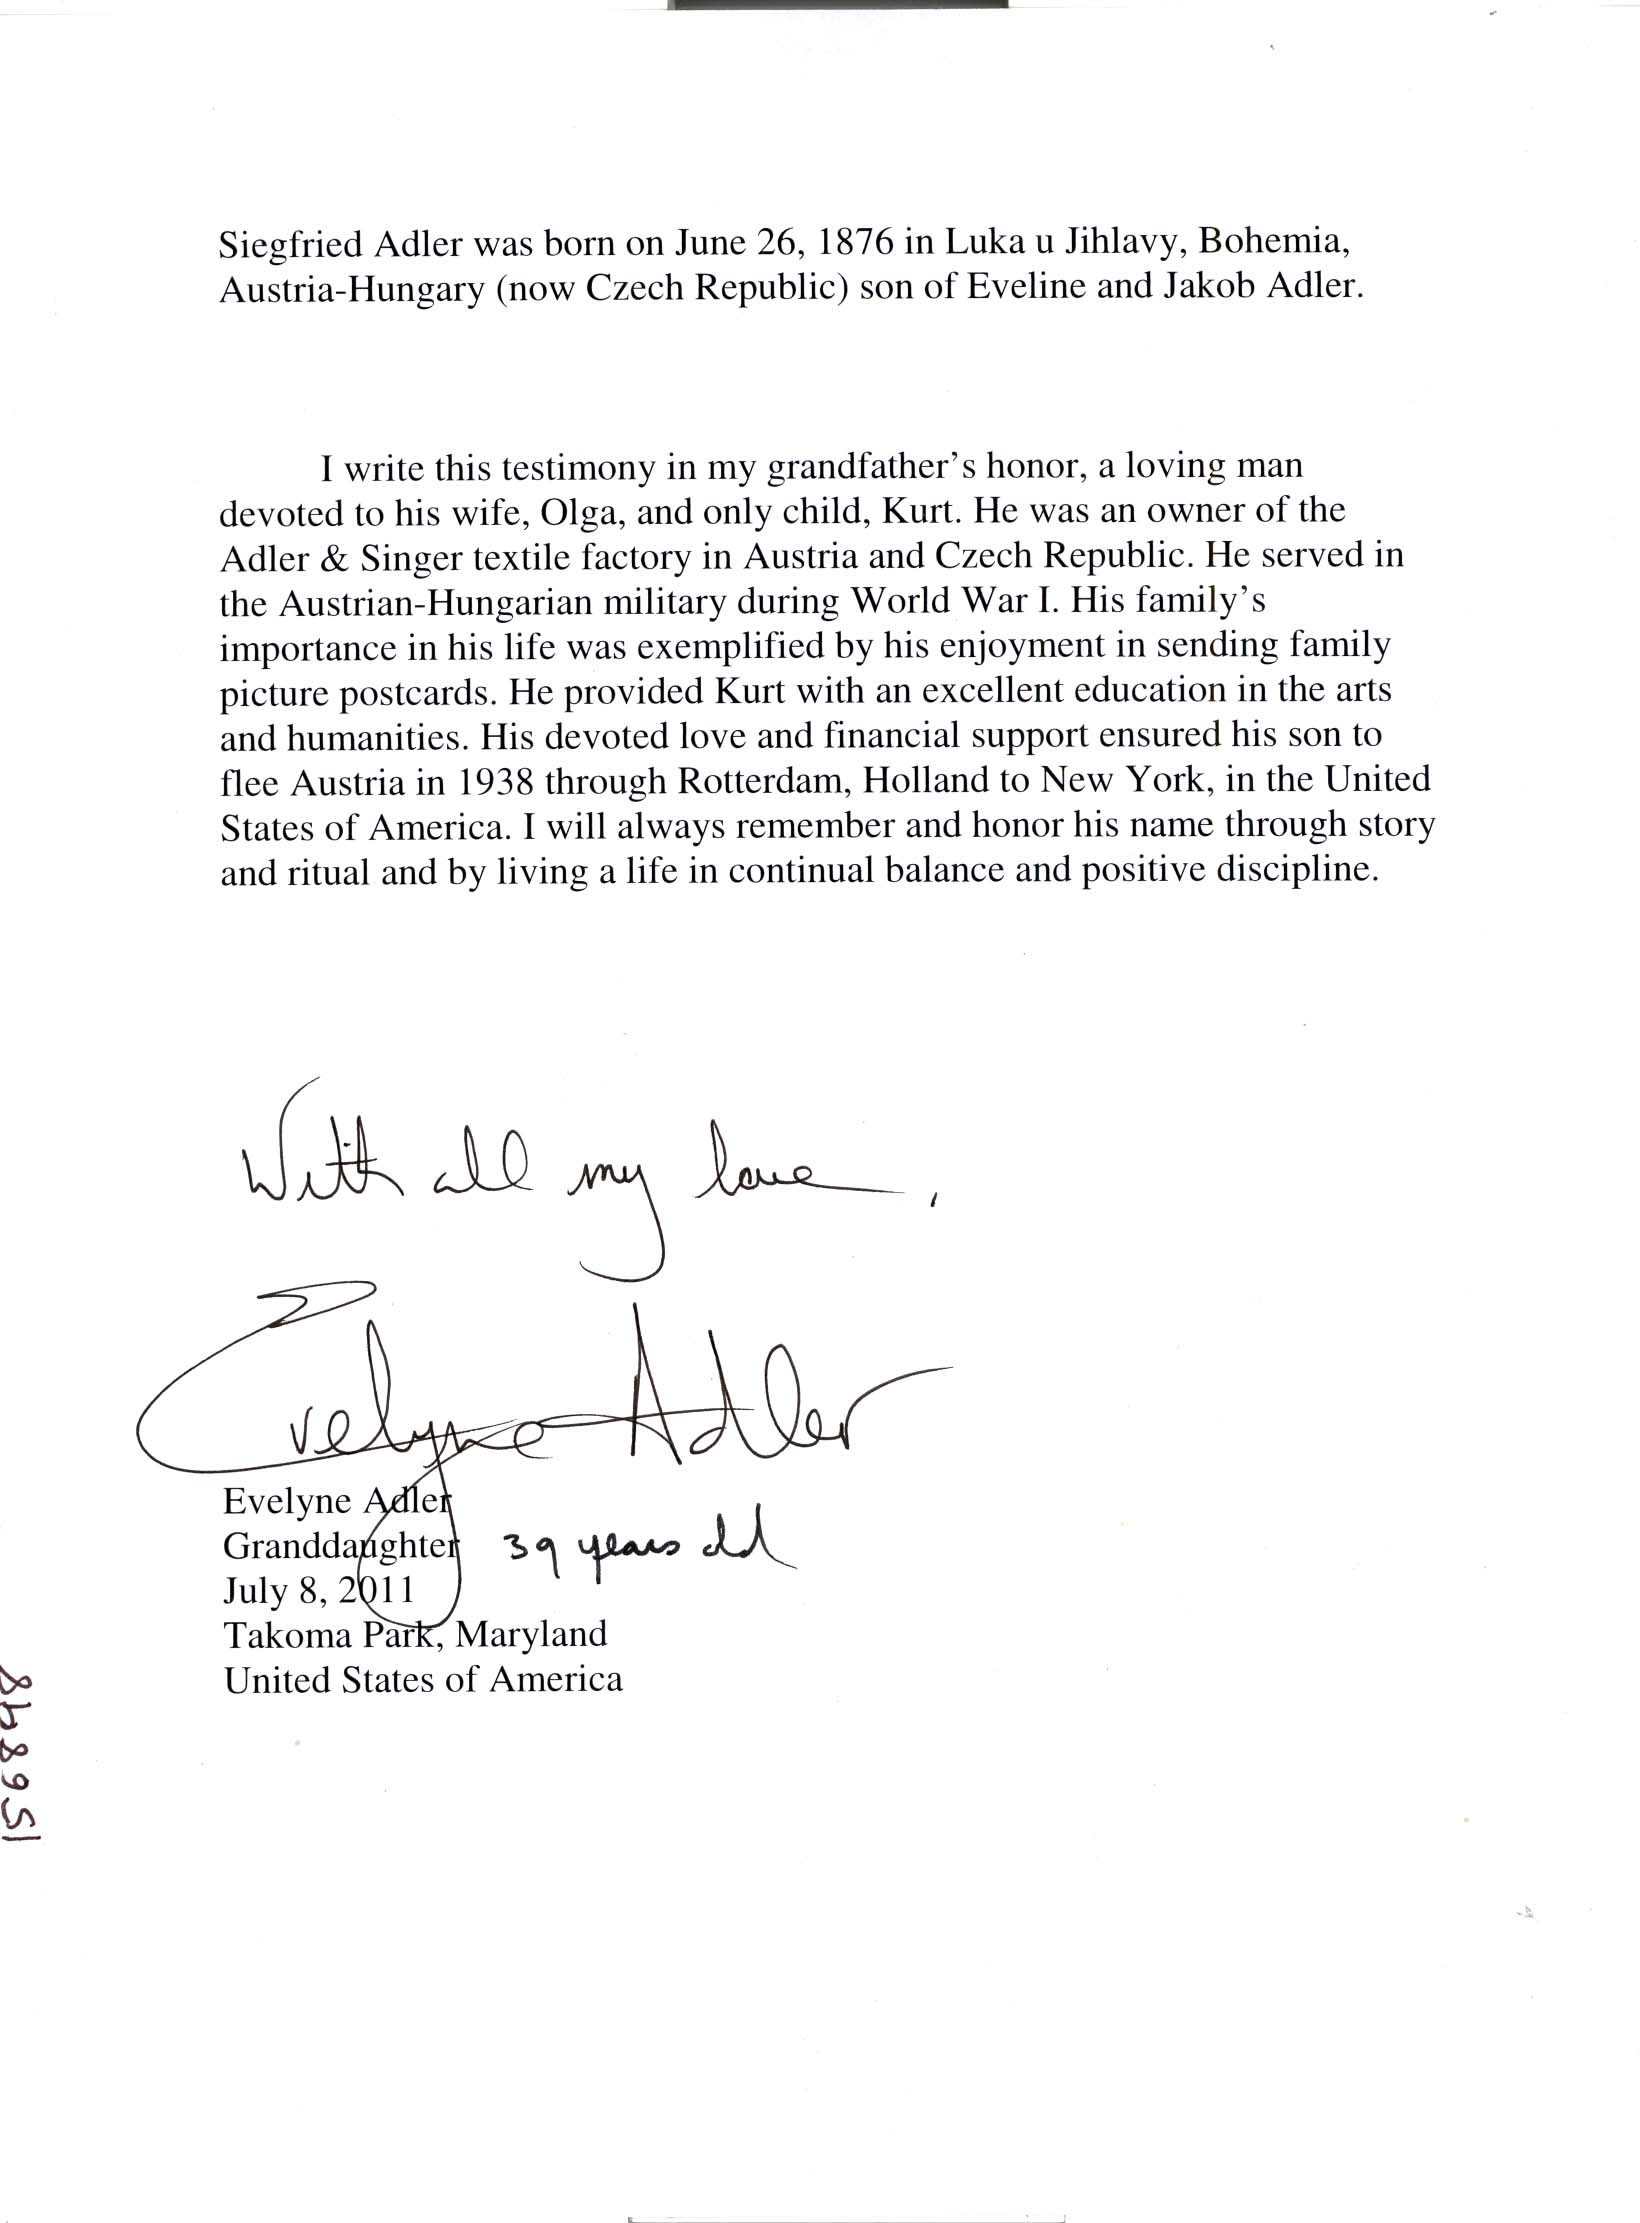 Siegfried Adler was born on June 26, 1876 in Luka u Jihlavy, Bohemia,
Austria-Hungary (now Czech Republic) son of Eveline and Jakob Adler.
I write this testimony in my grandfather's honor, a loving man
devoted to his wife, Olga, and only child, Kurt. He was an owner of the
Adler & Singer textile factory in Austria and Czech Republic. He served in
the Austrian-Hungarian military during World War I. His family's
importance in his life was exemplified by his enjoyment in sending family
picture postcards. He provided Kurt with an excellent education in the arts
and humanities. His devoted love and financial support ensured his son to
flee Austria in 1938 through Rotterdam, Holland to New York, in the United
States of America. I will always remember and honor his name through story
and ritual and by living a life in continual balance and positive discipline.
With all my love,
Evelyne Adler
Evelyne Adler
Granddaughter 39 years old
July 8, 2011
Takoma Park, Maryland
United States of America
156848